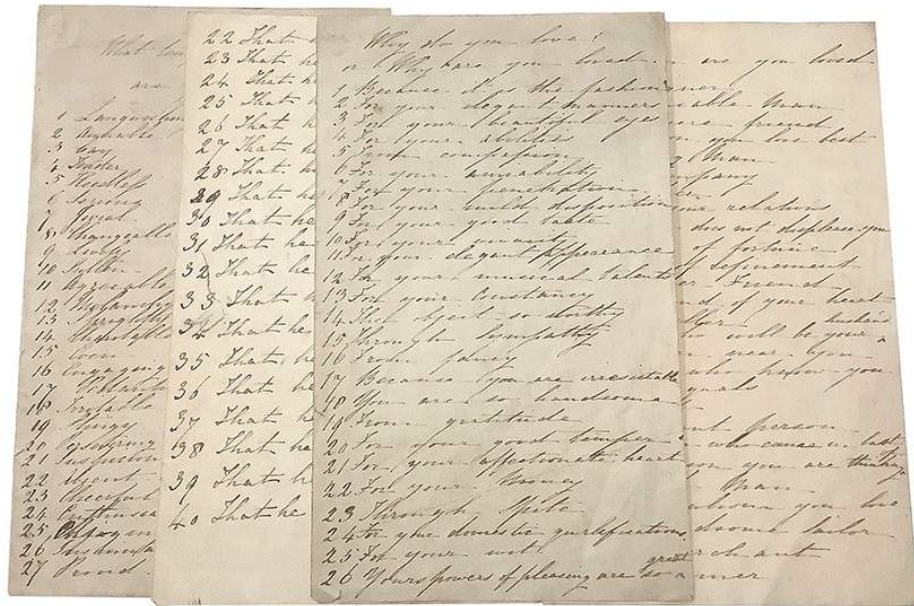 What
are
1 Languishing
2 Amiable
3 Gay
4 Tender
5 Heedless
6 Serious
7 Jovial
8 Changeable
9 Lively
10 Sullen
11 Agreeable
12 Melancho
13 Sprightly
14 Charitable
15
16 Engaging
17
18 Irritable
19 Stingy
20
21 Suspicion
22
23 Cheerful
24
25
26
27 Proud
22 That
23 That he
24 That h
25 That
26 That h
27 That h
28 That h
29 That he
30 That h
31 That he
32 That h
33 That h
34 That he
35 That he
36 That he
37 That h
38 That ha
39 That h
40 That he
Why do you love?
or Why are you loved
1 Because it is the fashion
2 For your elegant manners
3 For your beautiful eyes
4 For your abilities
5 From compassion
6 For your amiability
7 For your penetration
8 For your mild disposition
9 For your good taste
10 For your
11 For your elegant appearance
12 For your musical talents
13 For your Constancy
14 That object so worthy
15 Through Sympathy
16 From fancy
17 Because you are irresistable
18 You are so handsome
19 From gratitude
20 For your good temper
21 For your affectionate heart
22 For your Money
23 Through Spite
24 For your domestic qualifications
25 For your wit
26 Yours powers of pleasing are so great
are you loved
ner
iable Man
ere friend
you love best
y Man
mpany
our relations
does not displease you
of fortune
f refinement
er Friend
nd of your heart
ller
husband
will be your
near you
who knew you
quals
nt person
who came in last
on you are thinking of
Man
whom you love
dsome tailor
rchant
mer